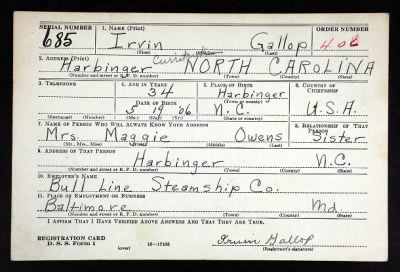 SERIAL NUMBER 1. NAME (Print) ORDER NUMBER
685 Irvin Gallop 406
(First) (Middle) (Last)
2. ADDRESS (Print)
Harbinger Currituck NORTH CAROLINA
(Number and street or R. F. D. number) (Town) (County) (State)
3. TELEPHONE 4. AGE IN YEARS 5. PLACE OF BIRTH 6. COUNTRY OF CITIZENSHIP
34 Harbinger
DATE OF BIRTH (Town or county)
5 19 06 N.C. U.S.A.
(Exchange) (Number) (Mo.) (Day) (Yr.) (State or country)
7. NAME OF PERSON WHO WILL ALWAYS KNOW YOUR ADDRESS 8. RELATIONSHIP OF THAT PERSON
Mrs. Maggie Owens Sister
(Mr., Mrs., Miss) (First) (Middle) (Last)
9. ADDRESS OF THAT PERSON
Harbinger N.C.
(Number and street or R. F. D. number) (Town) (County) (State)
10. EMPLOYER'S NAME
Bull Line Steamship Co.
11. PLACE OF EMPLOYMENT OR BUSINESS
Baltimore Md.
(Number and street or R. F. D. number) (Town) (County) (State)
I AFFIRM THAT I HAVE VERIFIED ABOVE ANSWERS AND THAT THEY ARE TRUE.
REGISTRATION CARD
D. S. S. Form 1 (over) 16—17105 Irvin Gallop
(Registrant's signature)